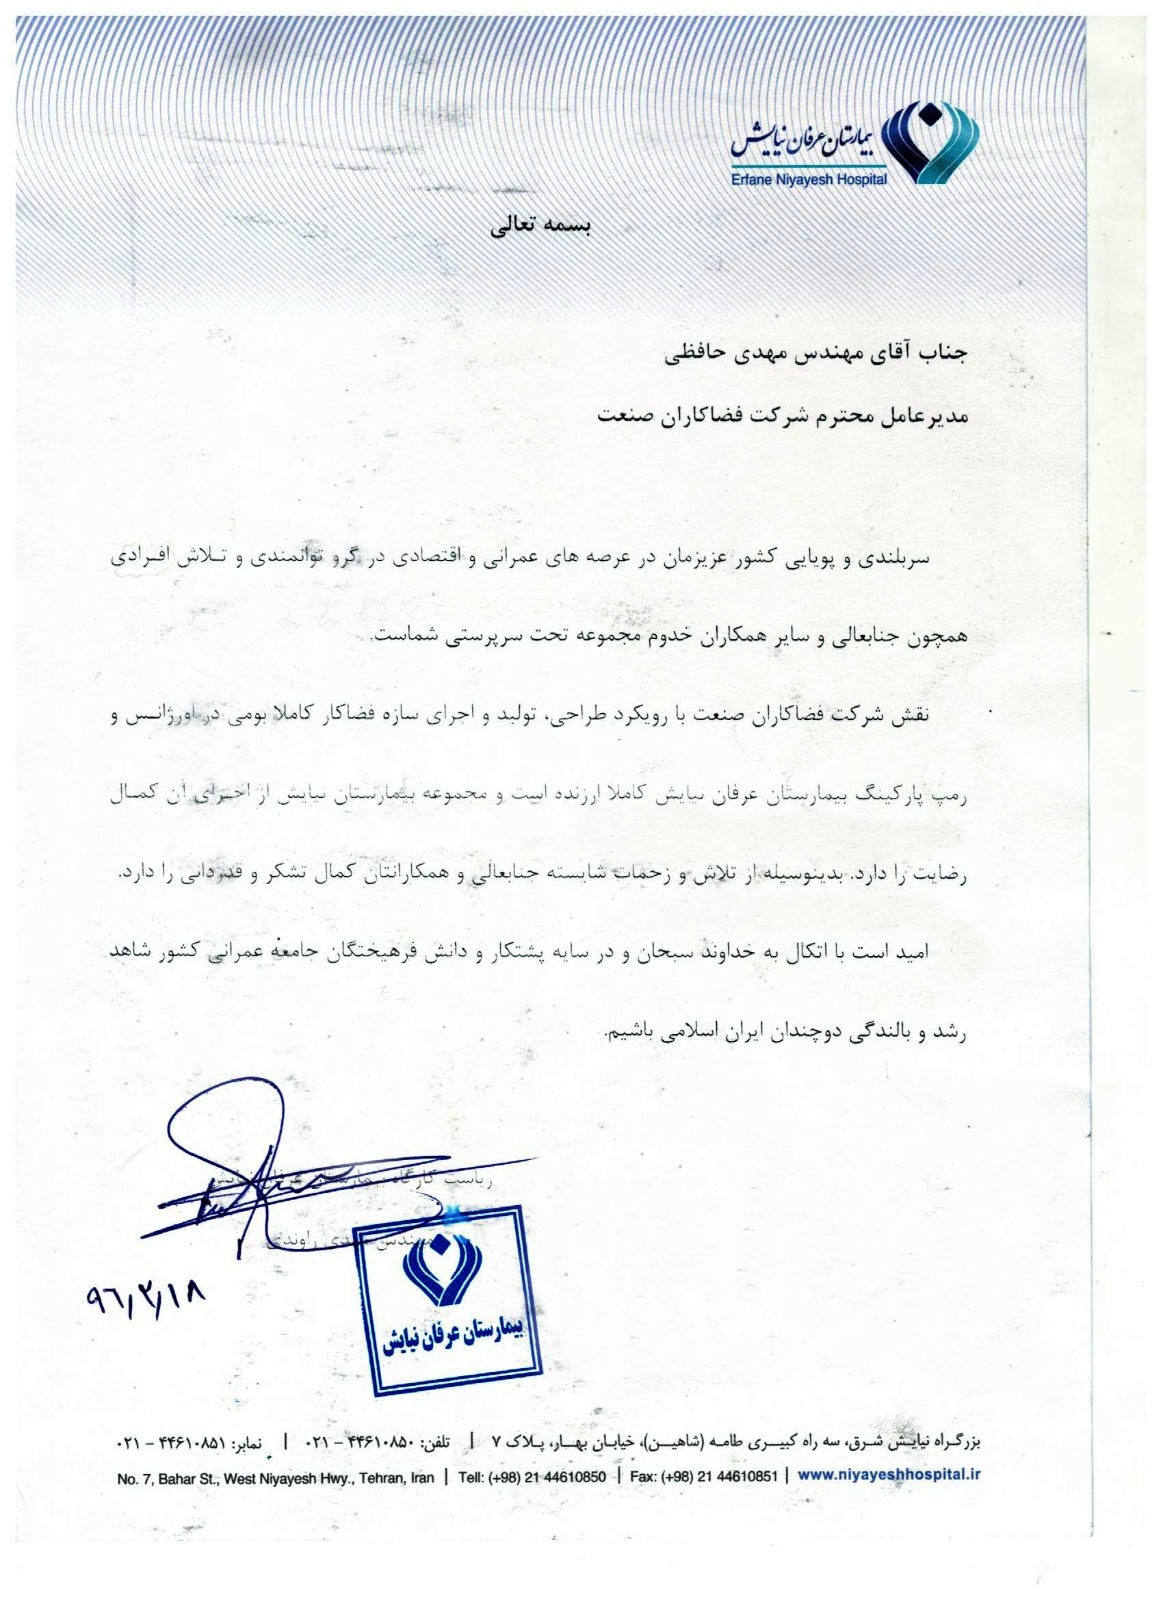 بیمارستان عرفان نیایش
Erfane Niyayesh Hospital
بسمه تعالی
جناب آقای مهندس مهدی حافظی
مدیرعامل محترم شرکت فضاکاران صنعت
سربلندی و پویایی کشور عزیزمان در عرصه های عمرانی و اقتصادی در گرو توانمندی و تـلاش افـرادی
همچون جنابعالی و سایر همکاران خدوم مجموعه تحت سرپرستی شماست.
نقش شرکت فضاکاران صنعت با رویکرد طراحی، تولید و اجرای سازه فضاکار کاملا بومی در اورژانـس و
رمپ پارکینگ بیمارستان عرفان نیایش کاملا ارزنده است و مجموعه بیمارستان نیایش از اجـرای آن کمـال
رضایت را دارد. بدینوسیله از تلاش و زحمات شایسته جنابعالی و همکارانتان کمال تشکر و قدردانی را دارد.
امید است با اتکال به خداوند سبحان و در سایه پشتکار و دانش فرهیختگان جامعه عمرانی کشور شاهد
رشد و بالندگی دوچندان ایران اسلامی باشیم.
ریاست کارگاه بیمارستان عرفان نیایش
مهندس مهدی راوندی
۹۶/۳/۱۸
بیمارستان عرفان نیایش
بزرگـراه نیایـش شـرق، سه راه کبیـری طامـه (شاهیـن)، خیابـان بهـار، پـلاک ۷ | تلفن: ۴۴۶۱۰۸۵۰ – ۰۲۱ | نمابر: ۴۴۶۱۰۸۵۱ – ۰۲۱
No. 7, Bahar St., West Niyayesh Hwy., Tehran, Iran | Tell: (+98) 21 44610850 | Fax: (+98) 21 44610851 | www.niyayeshhospital.ir